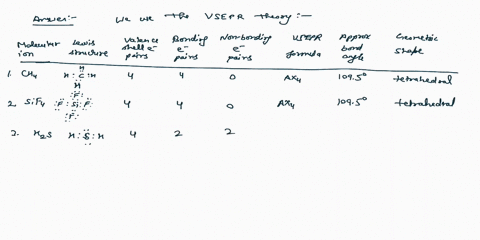 Answer:- We use the VSEPR theory:-
Molecular ion Lewis structure Valence shell e- pairs Bonding e- pairs Nonbonding e- pairs VSEPR formula Approx bond angle Geometric shape
1. CH4 H:C:H H H 4 4 0 AX4 109.5° tetrahedral
2. SiF4 :F:Si:F: :F: :F: 4 4 0 AX4 109.5° tetrahedral
3. H2S H:S:H 4 2 2